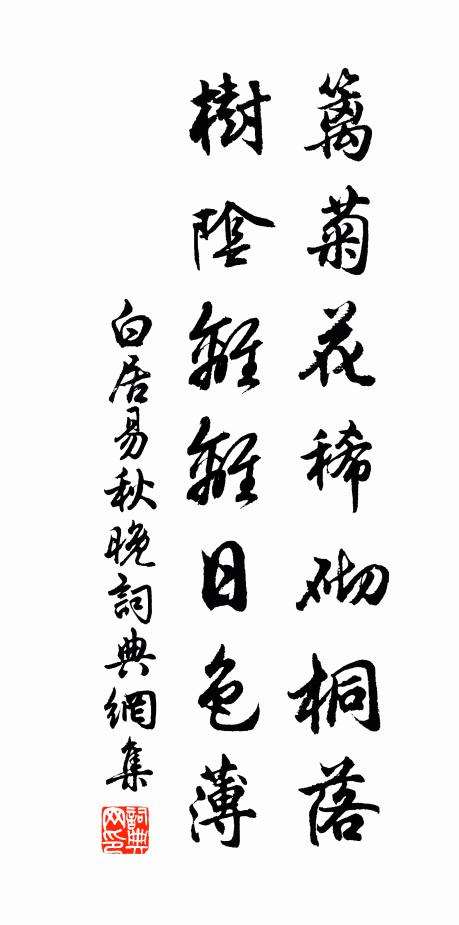 籬菊花稀砌桐落
樹陰離離日色薄
白居易秋晚詞典網集
詞典网印